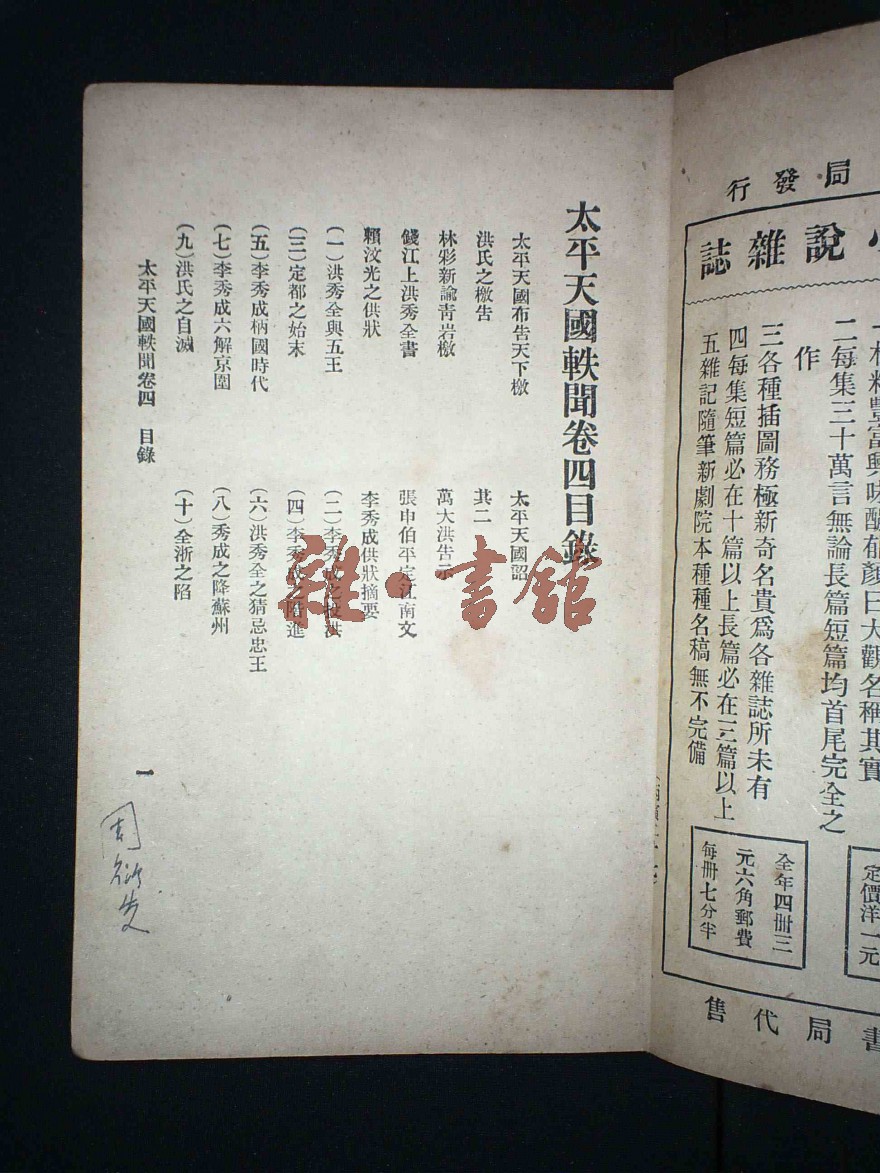 局發行
小說雜誌
二每集三十萬言無論長篇短篇均首尾完全之
作
三各種插圖務極新奇名貴爲各雜誌所未有
四每集短篇必在十篇以上長篇必在三篇以上
五雜記隨筆新劇院本種種名稿無不完備
定價洋一元
全年四冊三
元六角郵費
每冊七分半
書局代售
太平天國軼聞卷四目錄
太平天國布告天下檄
太平天國詔
洪氏之檄告
其二
林彩新諭靑岩檄
萬大洪告示
錢江上洪秀全書
張申伯平定江南文
賴汶光之供狀
李秀成供狀摘要
(一)洪秀全與五王
(二)李秀成之投洪
(三)定都之始末
(四)李秀成之階進
(五)李秀成柄國時代
(六)洪秀全之猜忌忠王
(七)李秀成六解京圍
(八)秀成之降蘇州
(九)洪氏之自滅
(十)全浙之陷
太平天國軼聞卷四 目錄
一
雜·書館